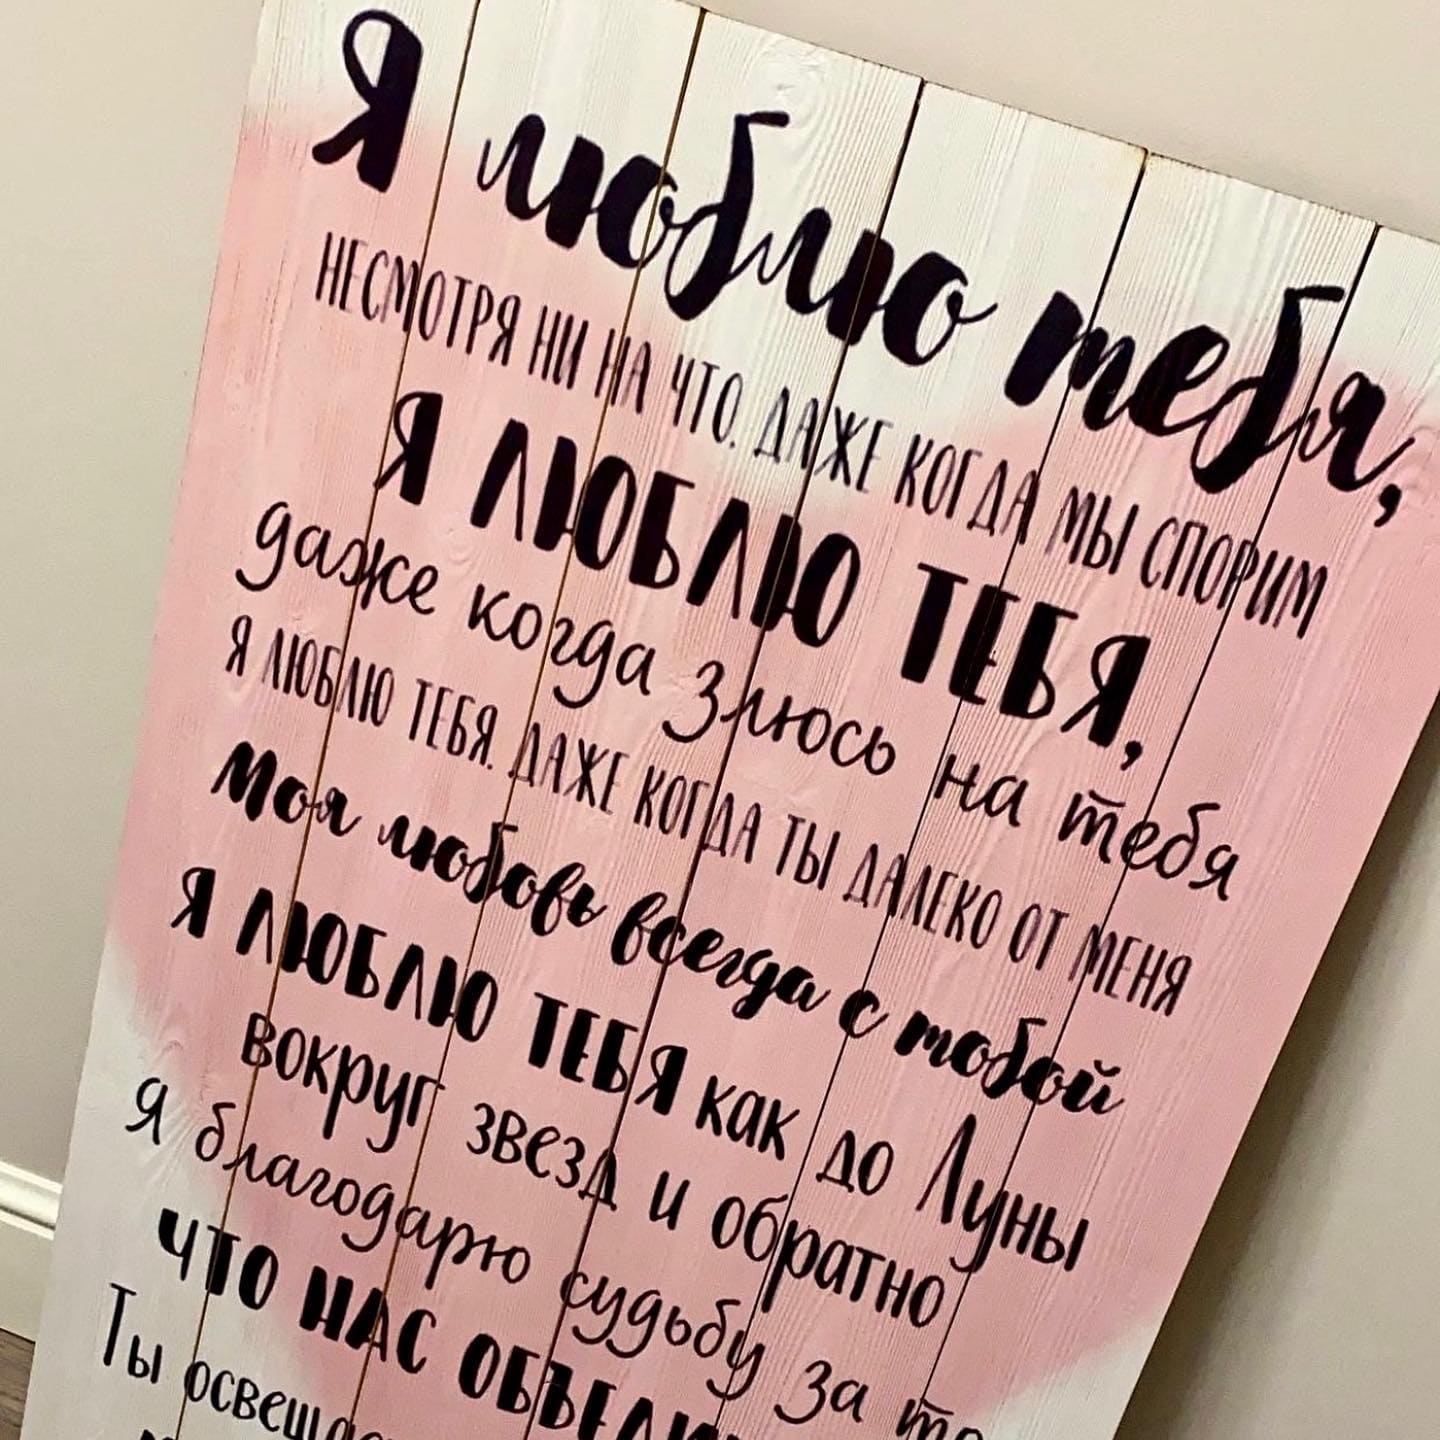 Я люблю тебя,
НЕСМОТРЯ НИ НА ЧТО. ДАЖЕ КОГДА МЫ СПОРИМ
Я ЛЮБЛЮ ТЕБЯ,
даже когда злюсь на тебя
Я ЛЮБЛЮ ТЕБЯ. ДАЖЕ КОГДА ТЫ ДАЛЕКО ОТ МЕНЯ
Моя любовь всегда с тобой
Я ЛЮБЛЮ ТЕБЯ как до Луны
вокруг звезд и обратно
Я благодарю судьбу за
ЧТО НАС
Ты